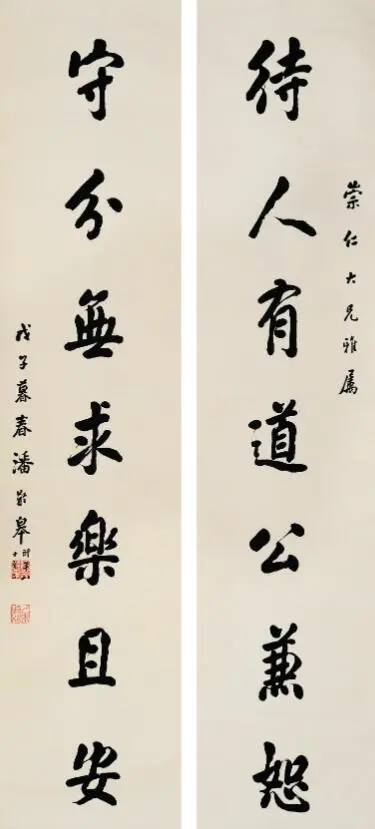 崇仁大兄雅属
待人有道公兼恕
守分無求樂且安
戊子暮春潘齡皋時年